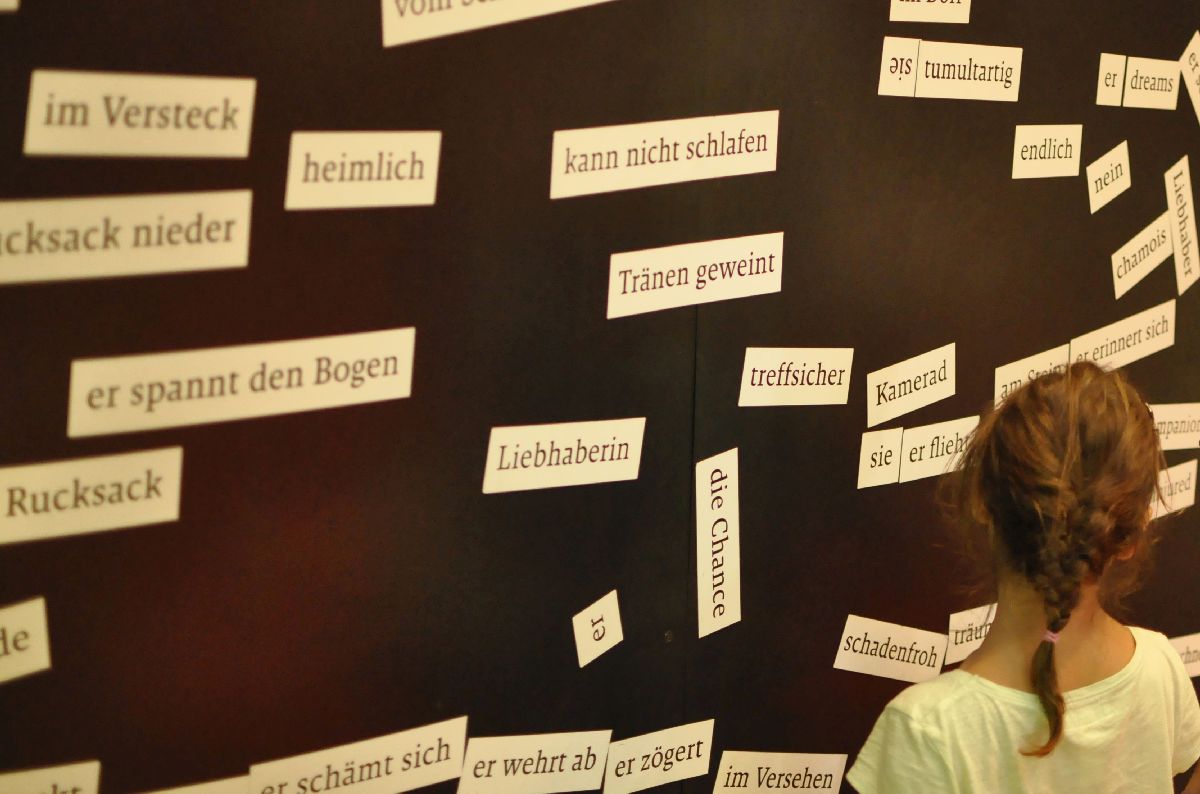 im Versteck
heimlich
kann nicht schlafen
sie tumultartig
er dreams
endlich
nein
Liebhaber
chamois
nieder
Tränen geweint
er spannt den Bogen
treffsicher
Kamerad
am Stein
er erinnert sich
Liebhaberin
sie er flieht
Rucksack
die Chance
er
schadenfroh
er schämt sich
er wehrt ab
er zögert
im Versehen